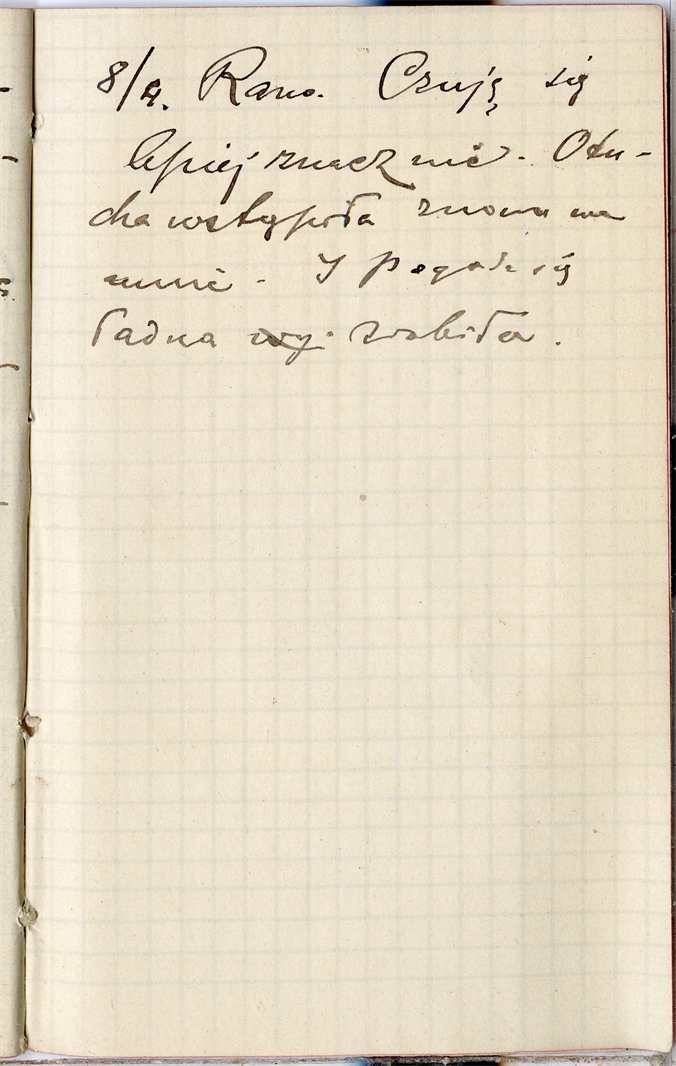 8/4. Rano. Czuję się
lepiej znacznie. Otu-
cha wstąpiła znowu we
mnie. I pogoda się
ładna wy. zrobiła.